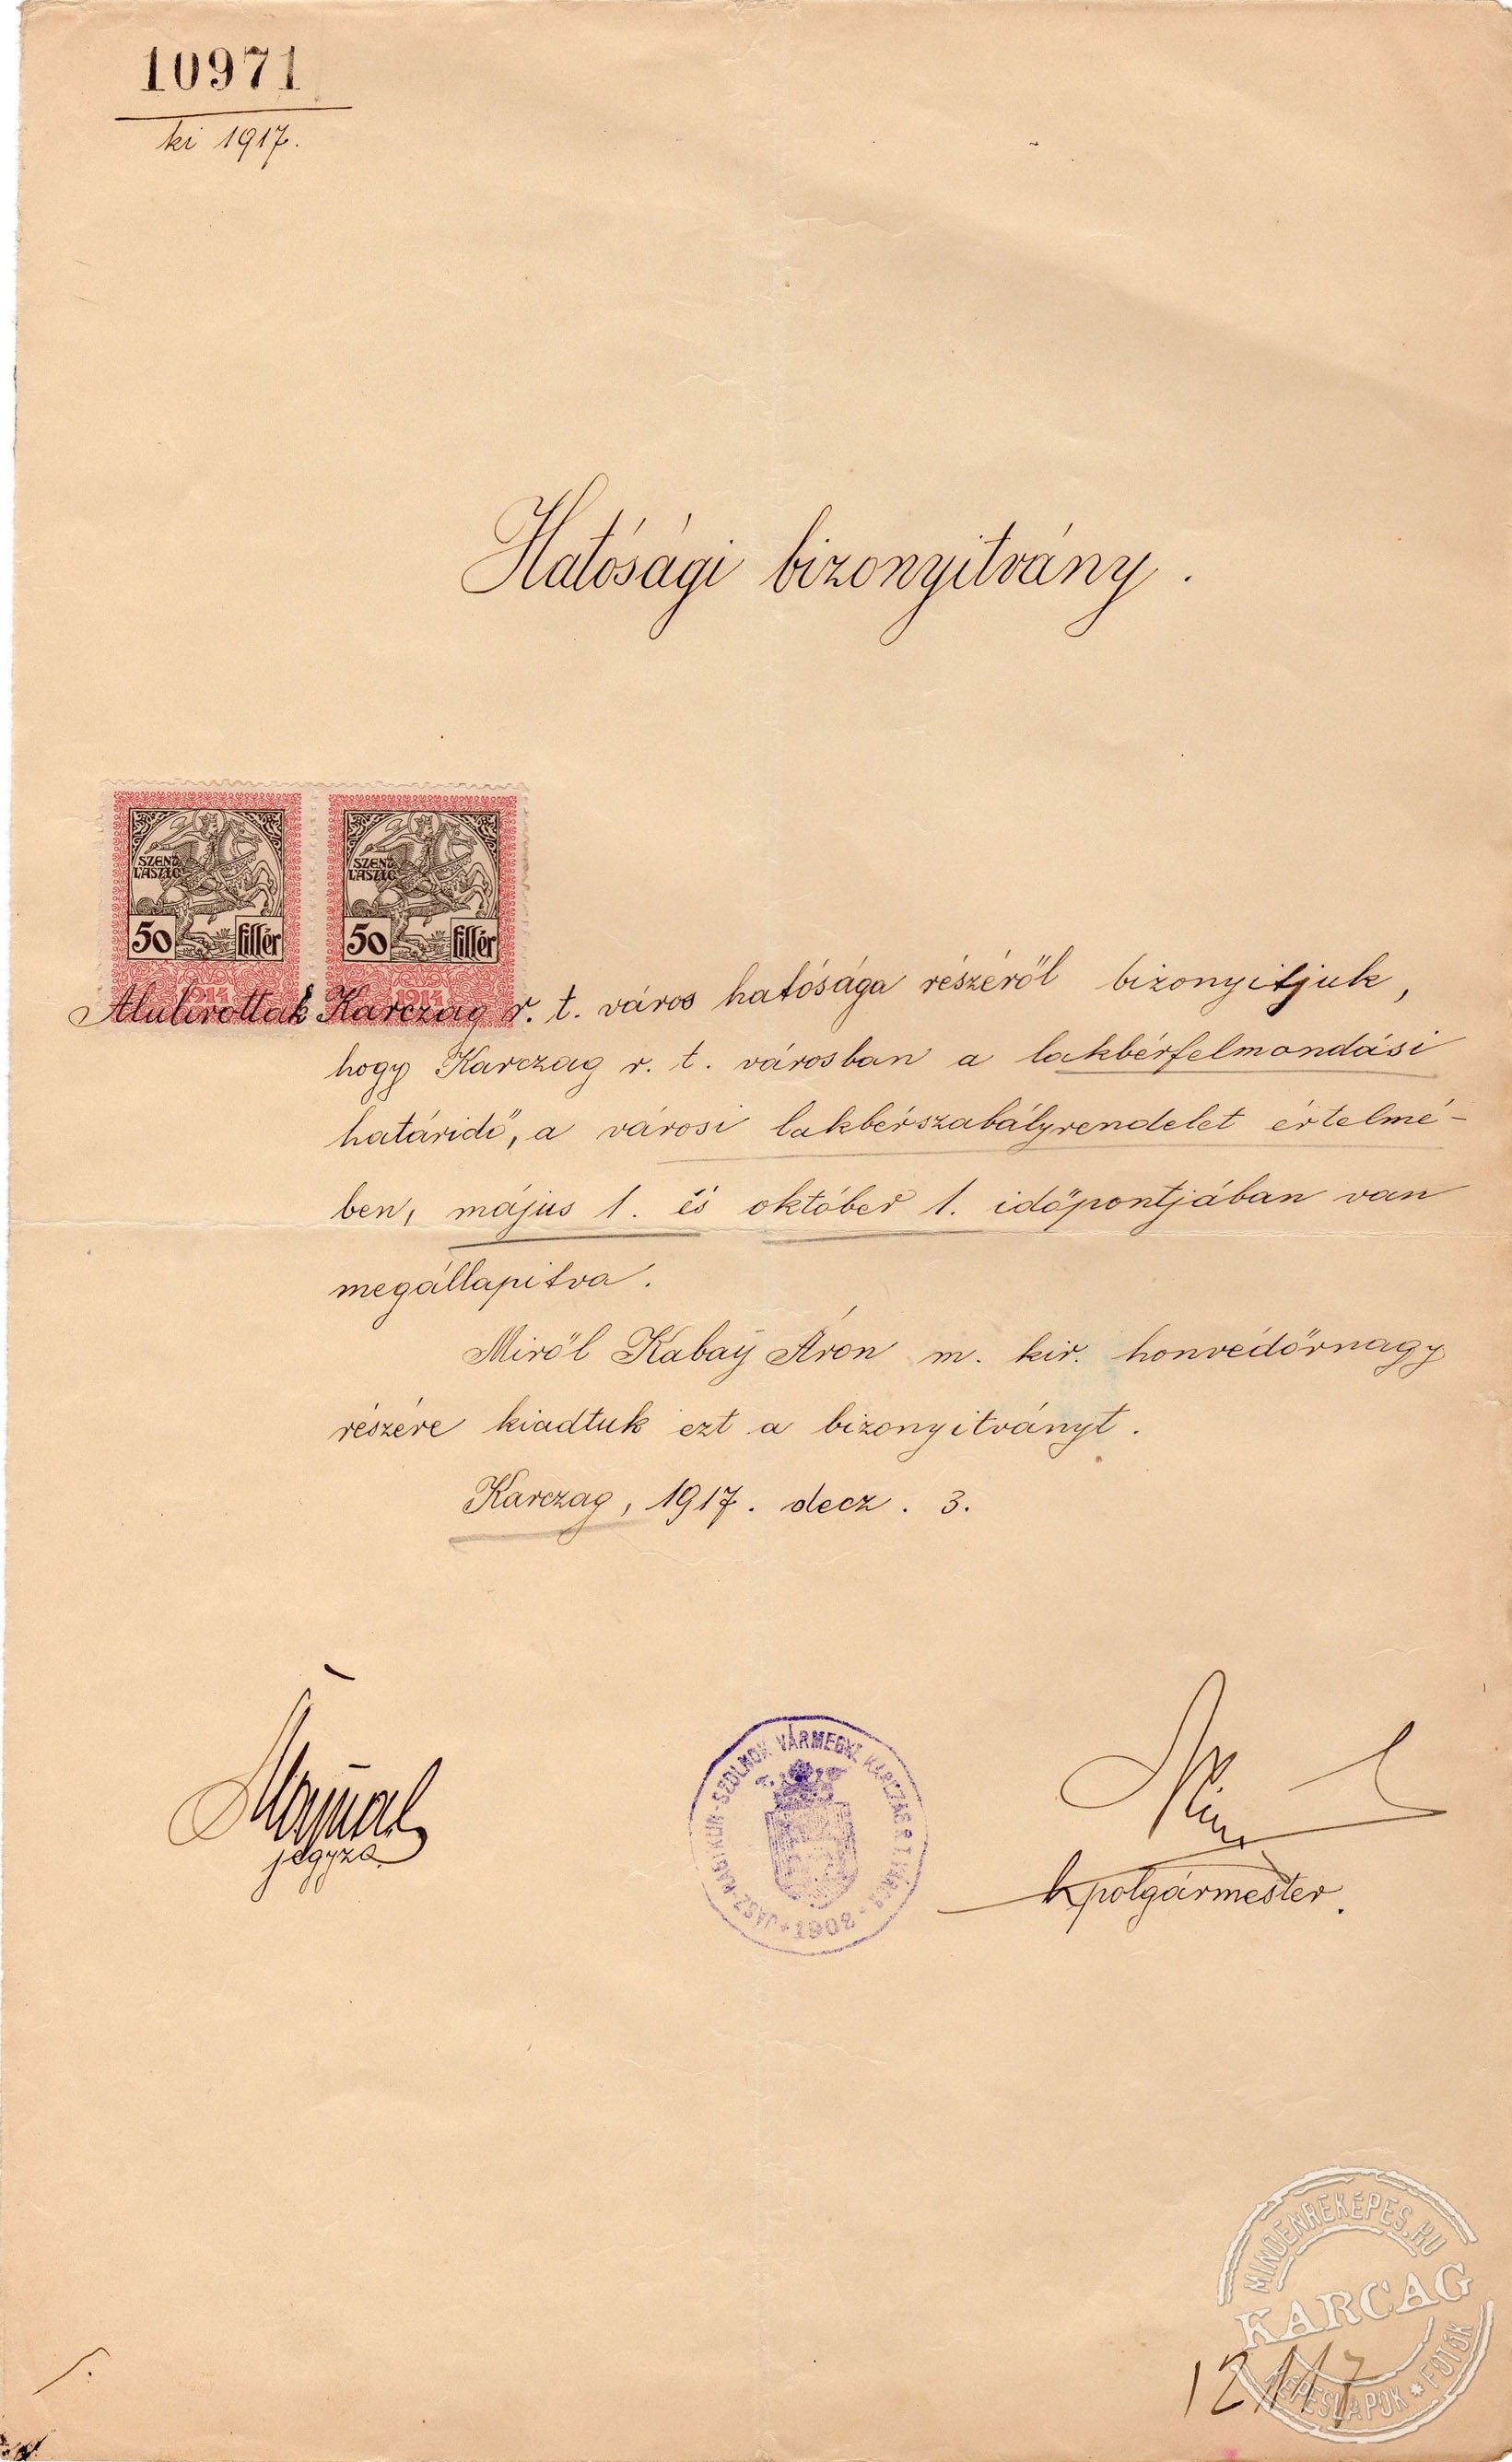 10971
ki 1917.
Hatósági bizonyitvány.
SZENT LÁSZLÓ
50 fillér
1914
SZENT LÁSZLÓ
50 fillér
1914
Alulirottak Karczag r. t. város hatósága részéről bizonyitjuk,
hogy Karczag r. t. városban a lakbérfelmondási
határidő, a városi lakbérszabályrendelet értelmé-
ben, május 1. és október 1. időpontjában van
megállapitva.
Miről Kabay Áron m. kir. honvédőrnagy
részére kiadtuk ezt a bizonyitványt.
Karczag, 1917. decz. 3.
jegyző.
JÁSZ-NAGYKUN-SZOLNOK VÁRMEGYE KARCZAG R. T. VÁROS
1902
h polgármester.
MINDENREKÉPES.HU
KARCAG
KÉPESLAPOK * FOTÓK